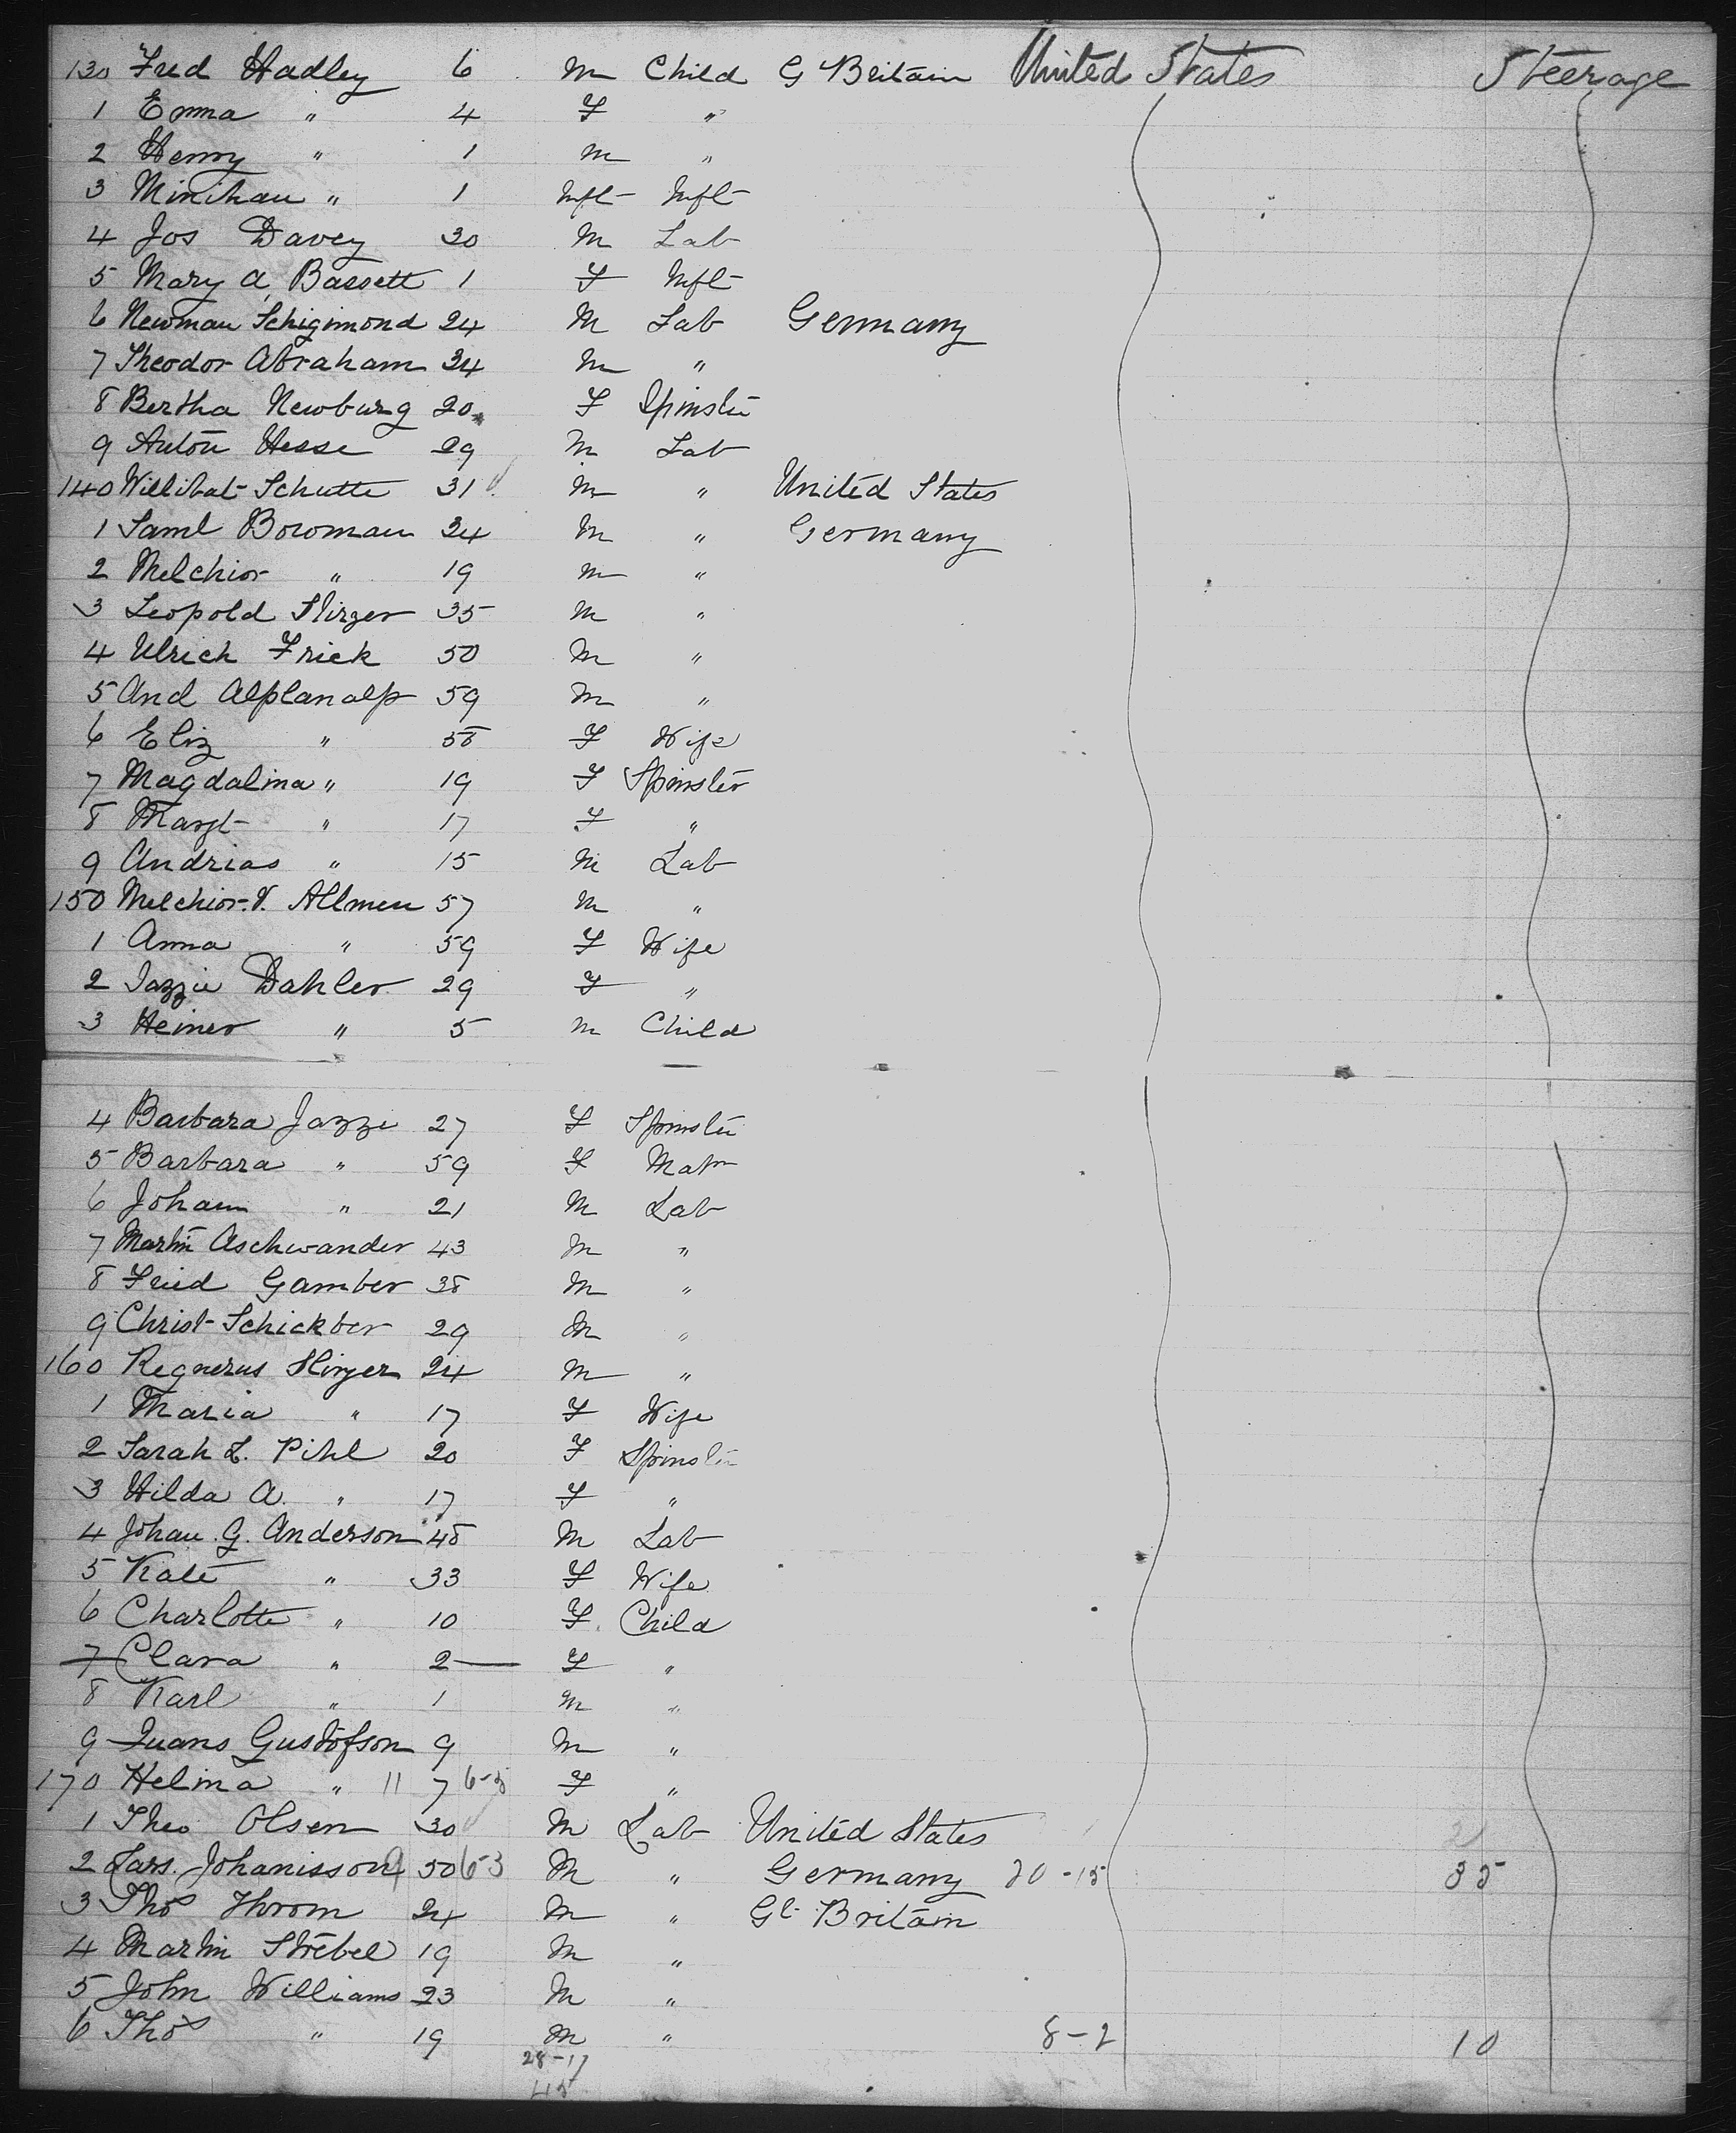 130 Fred Hadley 6 M Child G Britain United States Steerage
1 Emma " 4 F "
2 Henry " 1 M "
3 Minihan " 1 Inft Inft
4 Jos Davey 30 M Lab
5 Mary A Bassett 1 F Inft
6 Newman Schigimond 24 M Lab Germany
7 Theodor Abraham 34 M "
8 Bertha Newburg 20 F Spinster
9 Anton Hesse 29 M Lab
140 Willibat Schutte 31 M " United States
1 Saml Bowman 34 M " Germany
2 Melchior " 19 M "
3 Leopold 35 M "
4 Ulrich Frick 50 M "
5 And Alplanalp 59 M "
6 Eliz " 58 F Wife
7 Magdalina " 19 F Spinster
8 Margt " 17 F "
9 Andrias " 15 M Lab
150 Melchior V. Allmen 57 M "
1 Anna " 59 F Wife
2 Jazzie Dahler 29 F "
3 Heiner " 5 M Child
4 Barbara Jazzi 27 F Spinster
5 Barbara " 59 F Matn
6 Johann " 21 M Lab
7 Martin Aschwander 43 M "
8 Fried Gamber 38 M "
9 Christ Schickber 29 M "
160 Regnerus 24 M "
1 Maria " 17 F Wife
2 Sarah L. Pihl 20 F Spinster
3 Hilda A. " 17 F "
4 Johan G. Anderson 48 M Lab
5 Kate " 33 F Wife
6 Charlotte " 10 F Child
7 Clara " 2 F "
8 Karl " 1 M "
9 Gustofson 9 M "
170 Helma " 11 7 6-5 F "
1 Theo Olsen 30 M Lab United States 21
2 Lars. Johanisson 50 6-3 M " Germany 20-15 35
3 Thos Throm 24 M " Gt Britain
4 Martin Strebel 19 M "
5 John Williams 23 M "
6 Thos " 19 M " 8-2 10
28-17
45